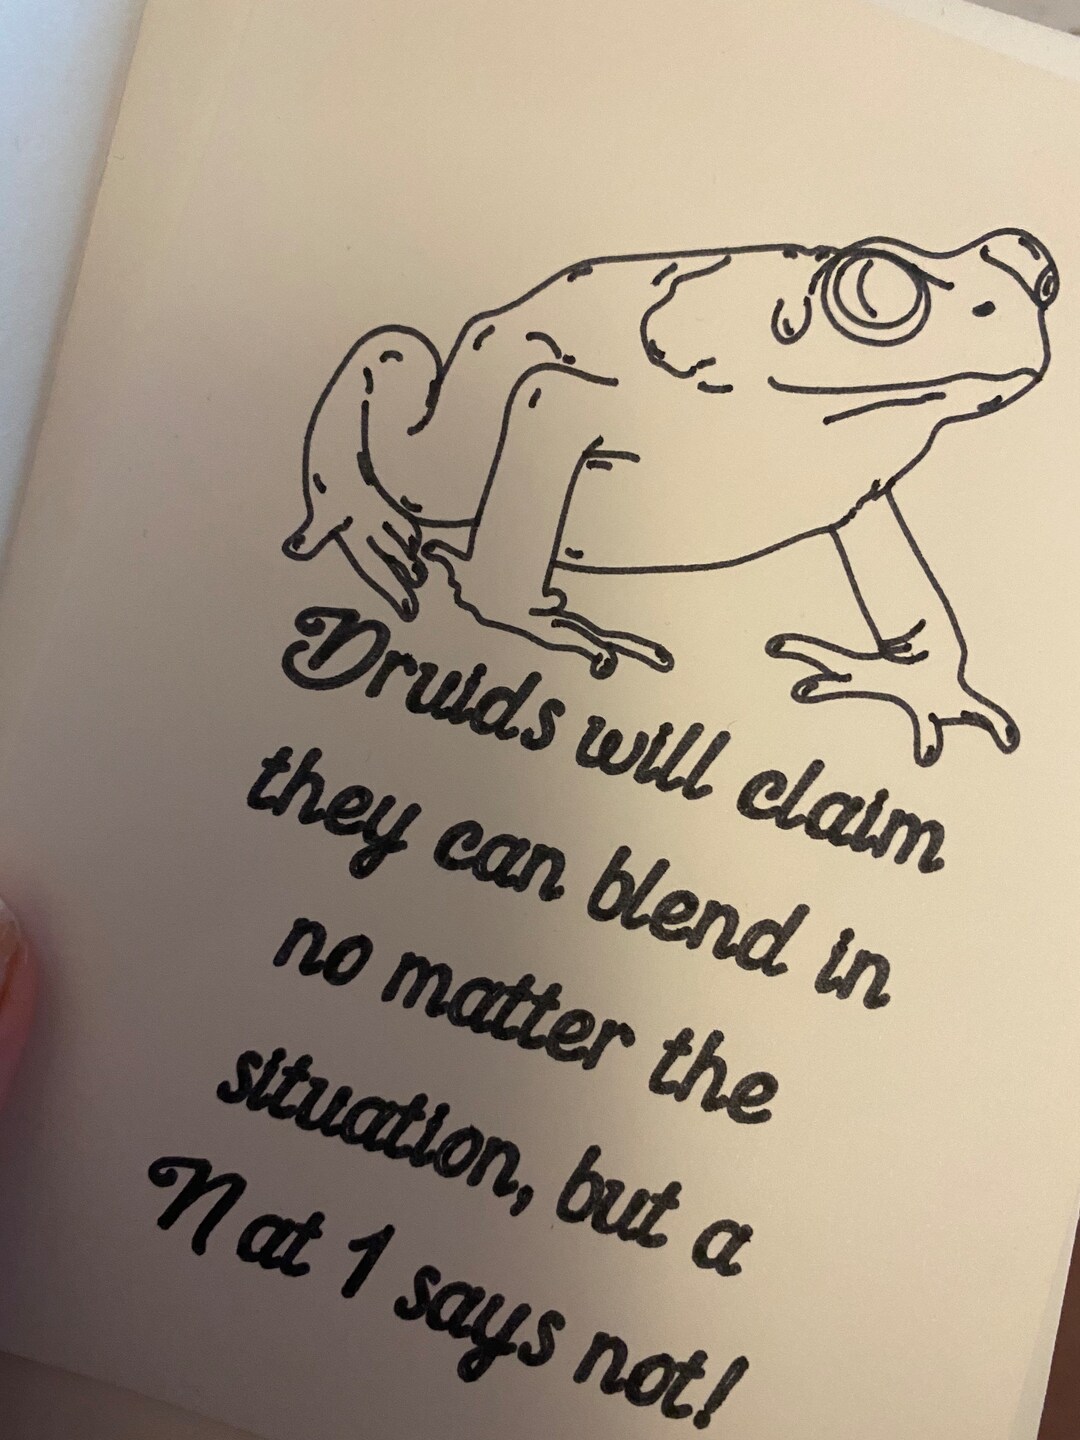 Druids will claim
they can blend in
no matter the
situation, but a
Nat 1 says not!